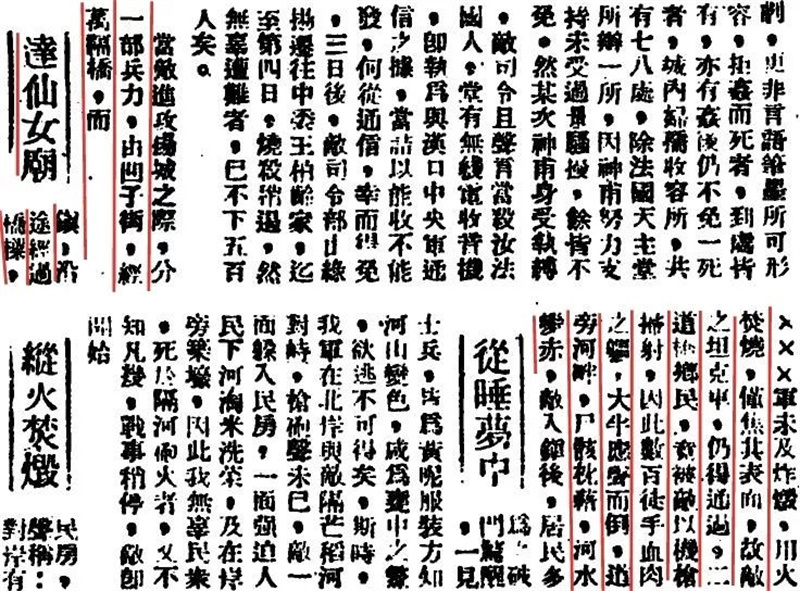 削，更非言語筆墨所可形
容，拒姦而死者，到處皆
有，亦有姦後仍不免一死
者，城內婦孺收容所，共
有七八處，除法國天主堂
所辦一所，因神甫努力支
持未受過量騷擾，餘皆不
免，然某次神甫身受執縛
，敵司令且聲言當殺汝法
國人，堂有無綫電收音機
，卽執爲與漢口中央軍通
信之據，當詰以能收不能
發，何從通信，幸而得免
，三日後，敵司令部由綠
揚遷往中委王柏齡家，迄
至第四日，燒殺稍過，然
無辜遭難者，已不下五百
人矣。
當敵進攻揚城之際，分
一部兵力，由凹子街，經
萬隔橋，而
達仙女廟
鎮，沿
途經過
橋樑，
×××軍未及炸燬，用火
焚燒，僅焦其表面，故敵
之坦克車，仍得通過，二
道橋鄉民，竟被敵以機槍
掃射，因此數百徒手血肉
之軀，大半應聲而倒，道
旁河畔，尸骸枕藉，河水
變赤，敵入鎮後，居民多
從睡夢中
爲打破
門驚醒
，一見
士兵，皆爲黃呢服裝方知
河山變色，咸爲甕中之鱉
，欲逃不可得矣，斯時，
我軍在北岸與敵隔芒稻河
對峙，槍砲聲未已，敵一
面躲入民房，一面強迫人
民下河淘米洗菜，及在岸
旁築壕，因此我無辜民衆
，死於隔河砲火者，又不
知凡幾，戰事稍停，敵卽
開始
縱火焚燬
民房，
聲稱：
對岸有